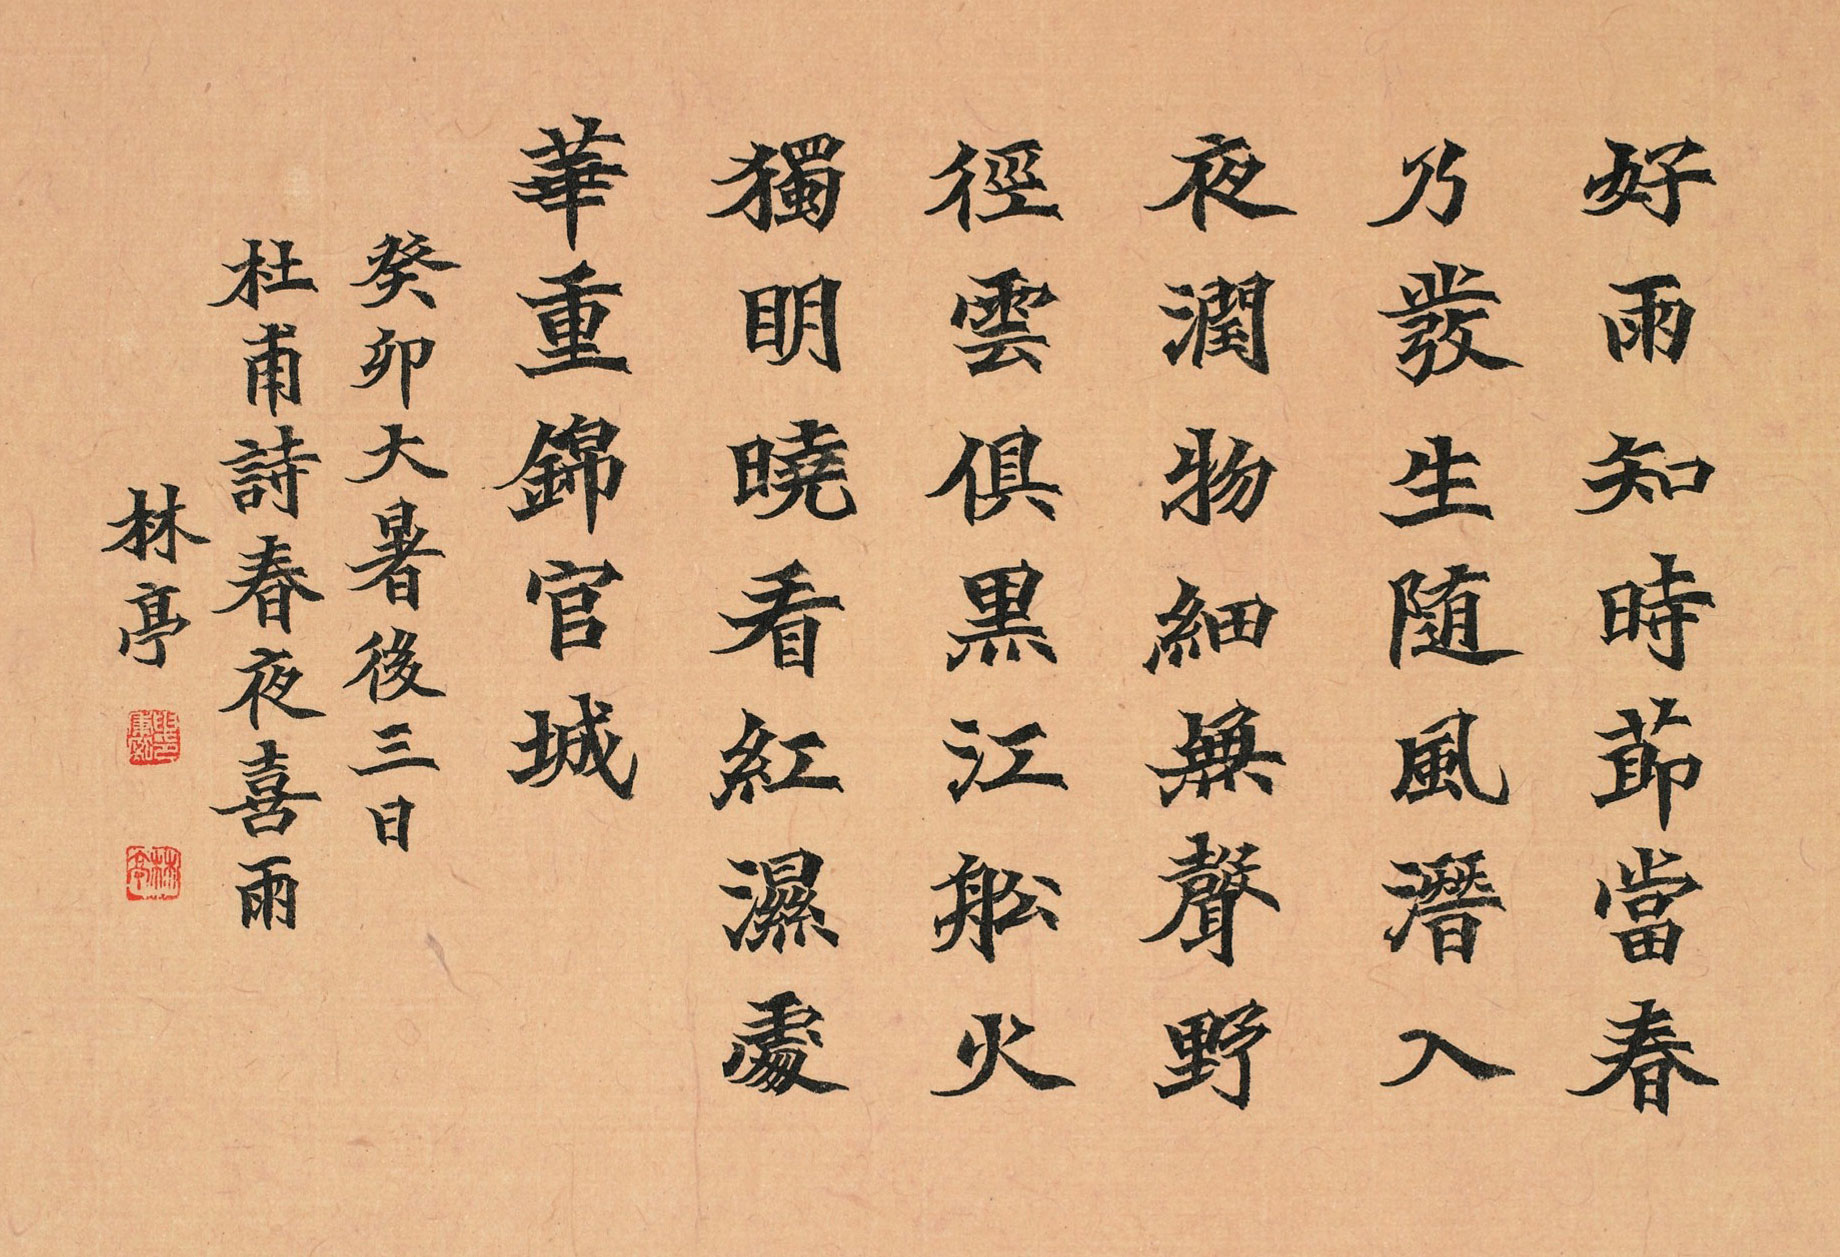 好雨知時節當春
乃發生随風潛入
夜潤物細無聲野
徑雲俱黒江舩火
獨明曉看紅濕處
華重錦官城
癸卯大暑後三日
杜甫詩春夜喜雨
林亭
林亭